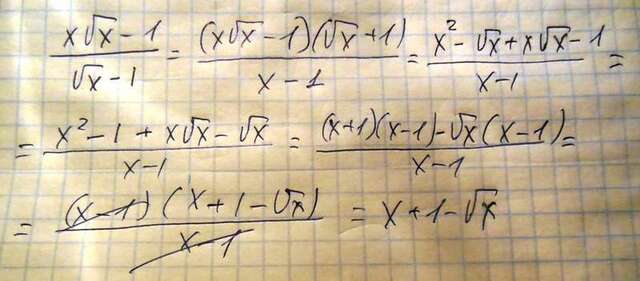 (x√x - 1)/(√x - 1) = ((x√x - 1)(√x + 1))/(x - 1) = (x² - √x + x√x - 1)/(x - 1) =
= (x² - 1 + x√x - √x)/(x - 1) = ((x+1)(x-1) - √x(x-1))/(x - 1) =
= ((x-1)(x + 1 - √x))/(x - 1) = x + 1 - √x